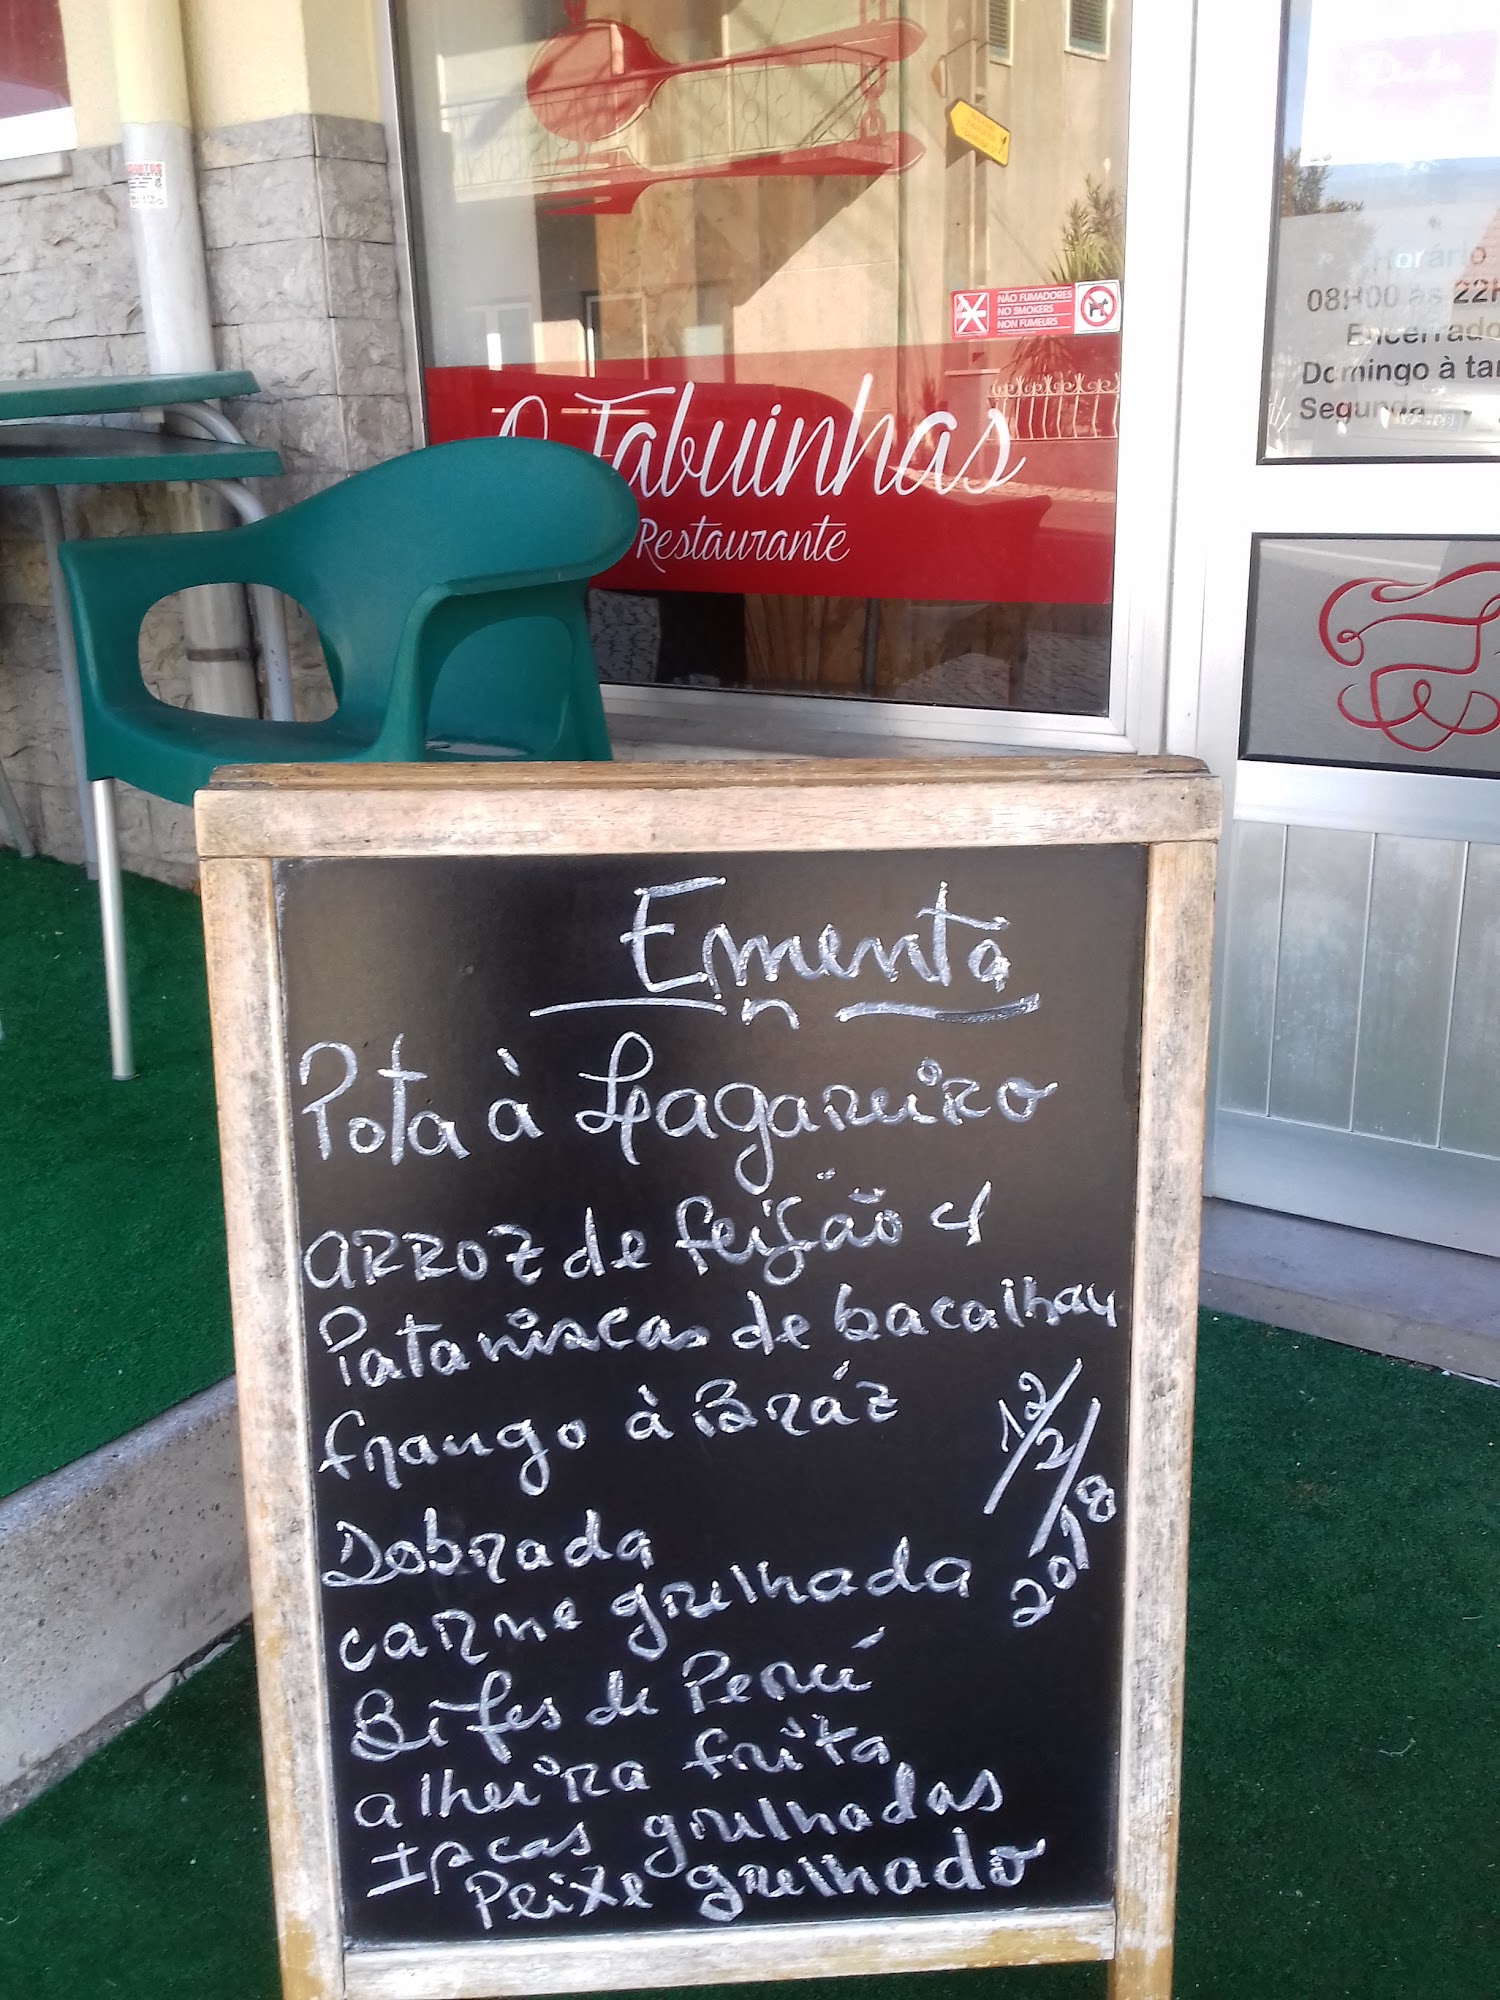 NÃO FUMADORES
NO SMOKERS
NON FUMEURS
Horário
08H00 às 22H
Encerrado
Domingo à tar
Segunda
O Fabuinhas
Restaurante
Ementa
Pota à Lagareiro
ARROZ de feijão c/
Pataniscas de bacalhau
frango à Bráz
12/2/2018
Dobrada
carne grelhada
Bifes de Perú
alheira frita
Iscas grelhadas
Peixe grelhado